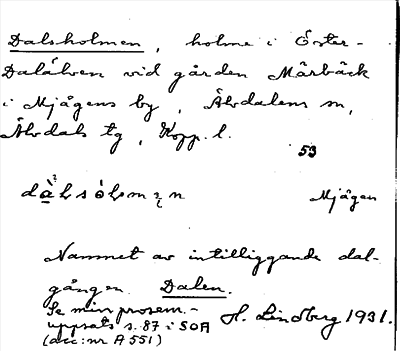 Dalsholmen, holme i Öster-
Dalälven vid gården Mårbäck
i Mjågens by, Älvdalens sn,
Älvdals tg, Kopp. l.
53
Mjågen
Namnet av intilliggande dal-
gången Dalen.
Se min prosem.-
uppsats s. 87 i SOA
(acc: nr A 551)
H. Lindberg 1931.